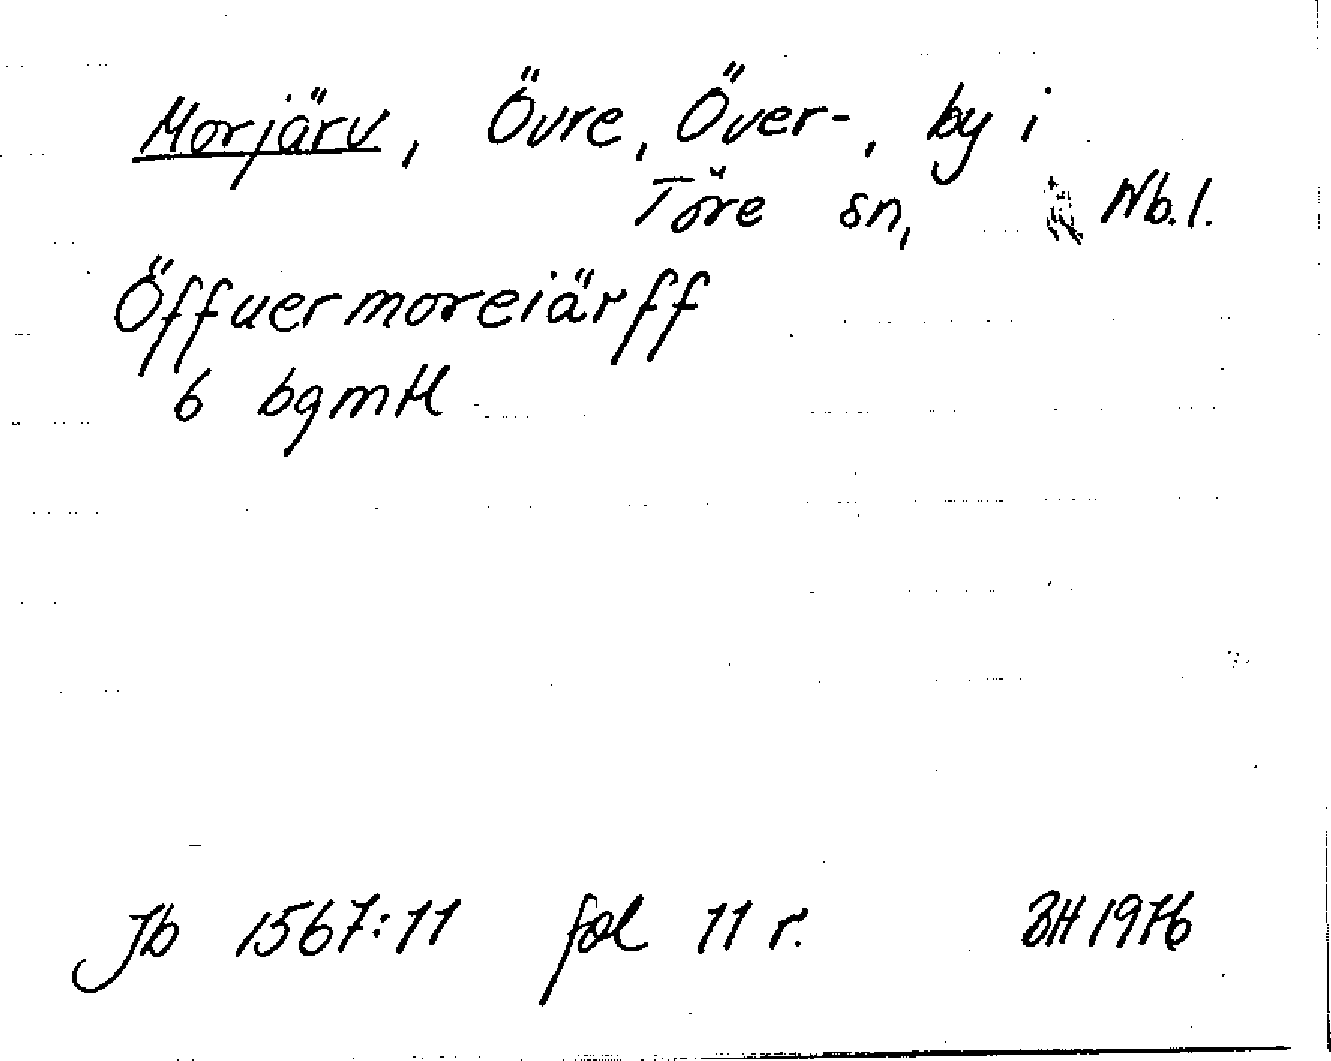 Morjärv, Övre, Över-, by i
Töre sn, Nb. l.
Öffuermoreiärff
6 bgmtl
Jb 1567:11 fol 11 r. BH 1976